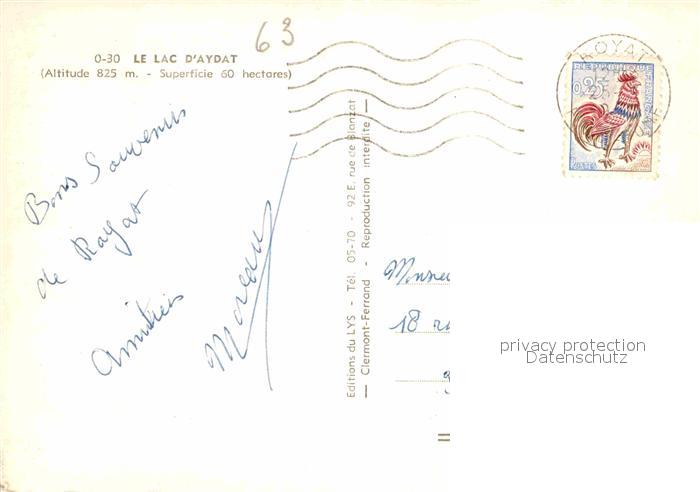 63
0-30 LE LAC D'AYDAT
(Altitude 825 m. - Superficie 60 hectares)
Bons Souvenirs
de Royat
Amitiés
Moreau
Editions du LYS - Tél. 05-70 - 92 E, rue de Blanzat
— Clermont-Ferrand - Reproduction interdite —
ROYAT
REPUBLIQUE FRANÇAISE
0,25
POSTES
Monsieu
18 ru
privacy protection
Datenschutz